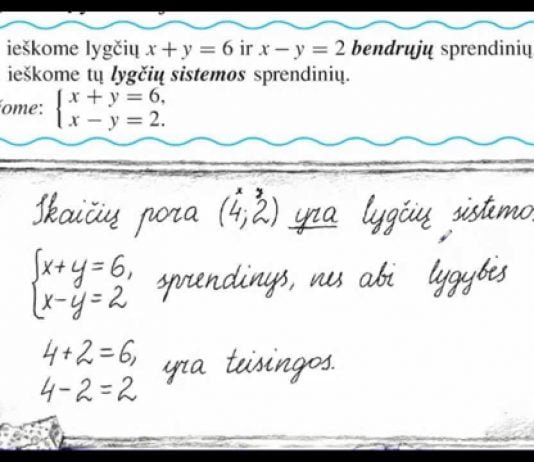 ieškome lygčių x + y = 6 ir x − y = 2 bendrųjų sprendinių
ieškome tų lygčių sistemos sprendinių.
ome: { x + y = 6,
x − y = 2.
x y
Skaičių pora (4; 2) yra lygčių sistemos
{ x + y = 6,
x − y = 2 sprendinys, nes abi lygybės
4 + 2 = 6,
4 − 2 = 2 yra teisingos.